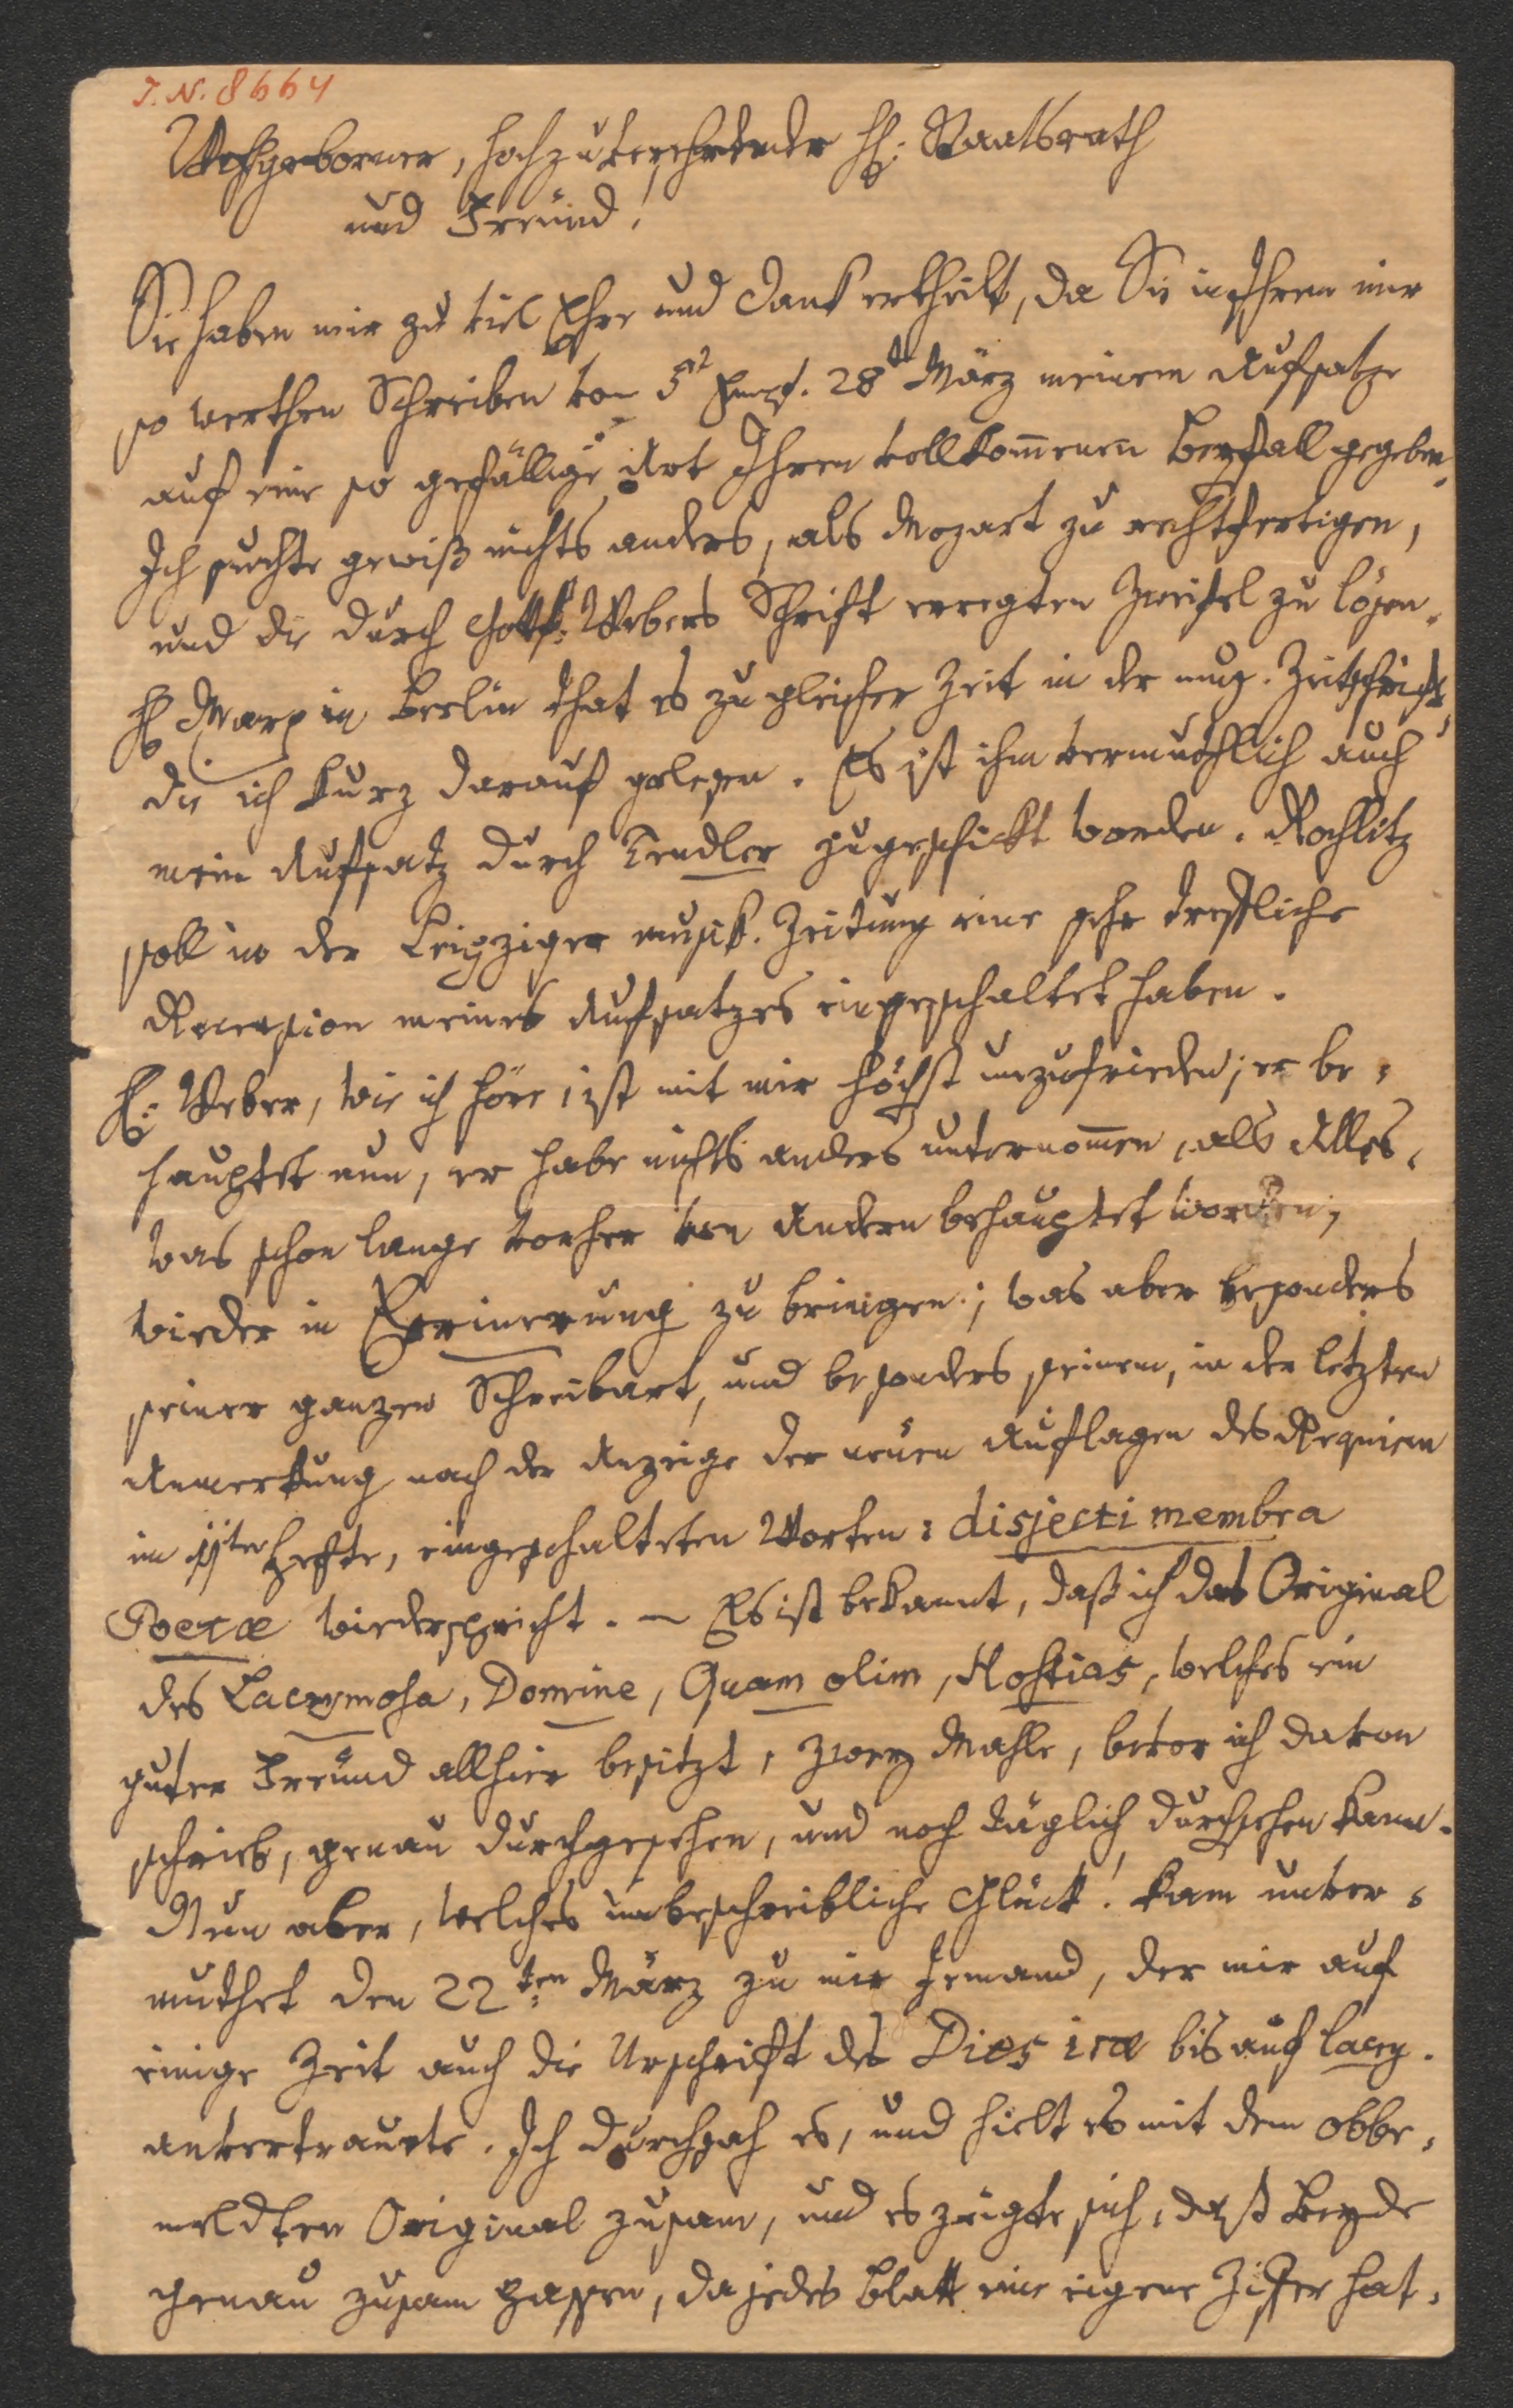 J. N. 8664
Wohlgeborner, Hochzuverehrender H: Staatsrath
und Freund!
Sie haben mir zu viel Ehre und Dank ertheilt, da Sie in Ihrem mir
so werthen Schreiben vom 5t Empf. 28t März meinem Aufsatze
auf eine so gefällige Art Ihren vollkom̄enen Beyfall gegeben.
Ich suchte gewiß nichts anders, als Mozart zu rechtfertigen,
und die durch Gottf: Webers Schrift erregten Zweifel zu lösen.
H Marx in Berlin that es zu gleicher Zeit in der mus. Zeitschrift,
die ich kurz darauf gelesen. Es ist ihm vermuthlich auch
mein Aufsatz durch Tendler zugeschickt worden. Rochlitz
soll in der Leipziger musik. Zeitung eine sehr trefliche
Recension meines Aufsatzes eingeschaltet haben.
H: Weber, wie ich höre, ist mit mir höchst unzufrieden; er be-
hauptet nun, er habe nichts anders unternom̄en, als Alles,
was schon lange vorher von Andern behauptet worden,
wieder in Errinerung zu bringen; was aber besonders
seiner ganzen Schreibart, und besonders seinen, in der letzten
Anmerkung nach der Anzeige der neuen Auflagen des Requiem
im 11ten Hefte, eingeschalteten Worten: disjecti membra
Poetæ wiederspricht. – Es ist bekannt, daß ich das Original
des Lacrymosa, Domine, Quam olim, Hostias, welches ein
guter Freund allhier besitzt, zwey Mahle, bevor ich davon
schrieb, genau durchgesehen, und noch täglich durchsehen kann.
Nun aber, welches unbeschreibliche Glück! kam unver-
muthet den 22ten März zu mir Jemand, der mir auf
einige Zeit auch die Urschrift des Dies iræ bis auf lacry.
anvertraute. Ich durchsah es, und hielt es mit dem obbe-
meldten Original zusam, und es zeigte sich, daß Beyde
genau zusam passen, da jedes Blatt eine eigene Ziffer hat.